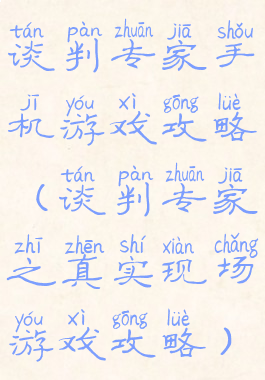 tán pàn zhuān jiā shǒu
谈判专家手
jī yóu xì gōng lüè
机游戏攻略
tán pàn zhuān jiā
（谈判专家
zhī zhēn shí xiàn chǎng
之真实现场
yóu xì gōng lüè
游戏攻略）